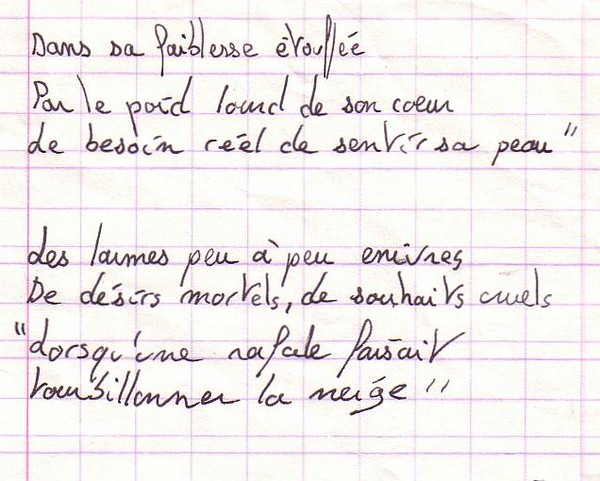 Dans sa faiblesse étouffée
Par le poid lourd de son coeur
de besoin réél de sentir sa peau "
des larmes peu à peu enivres
De désirs mortels, de souhaits cruels
"Lorsqu'une rafale faisait
tourbillonner la neige "